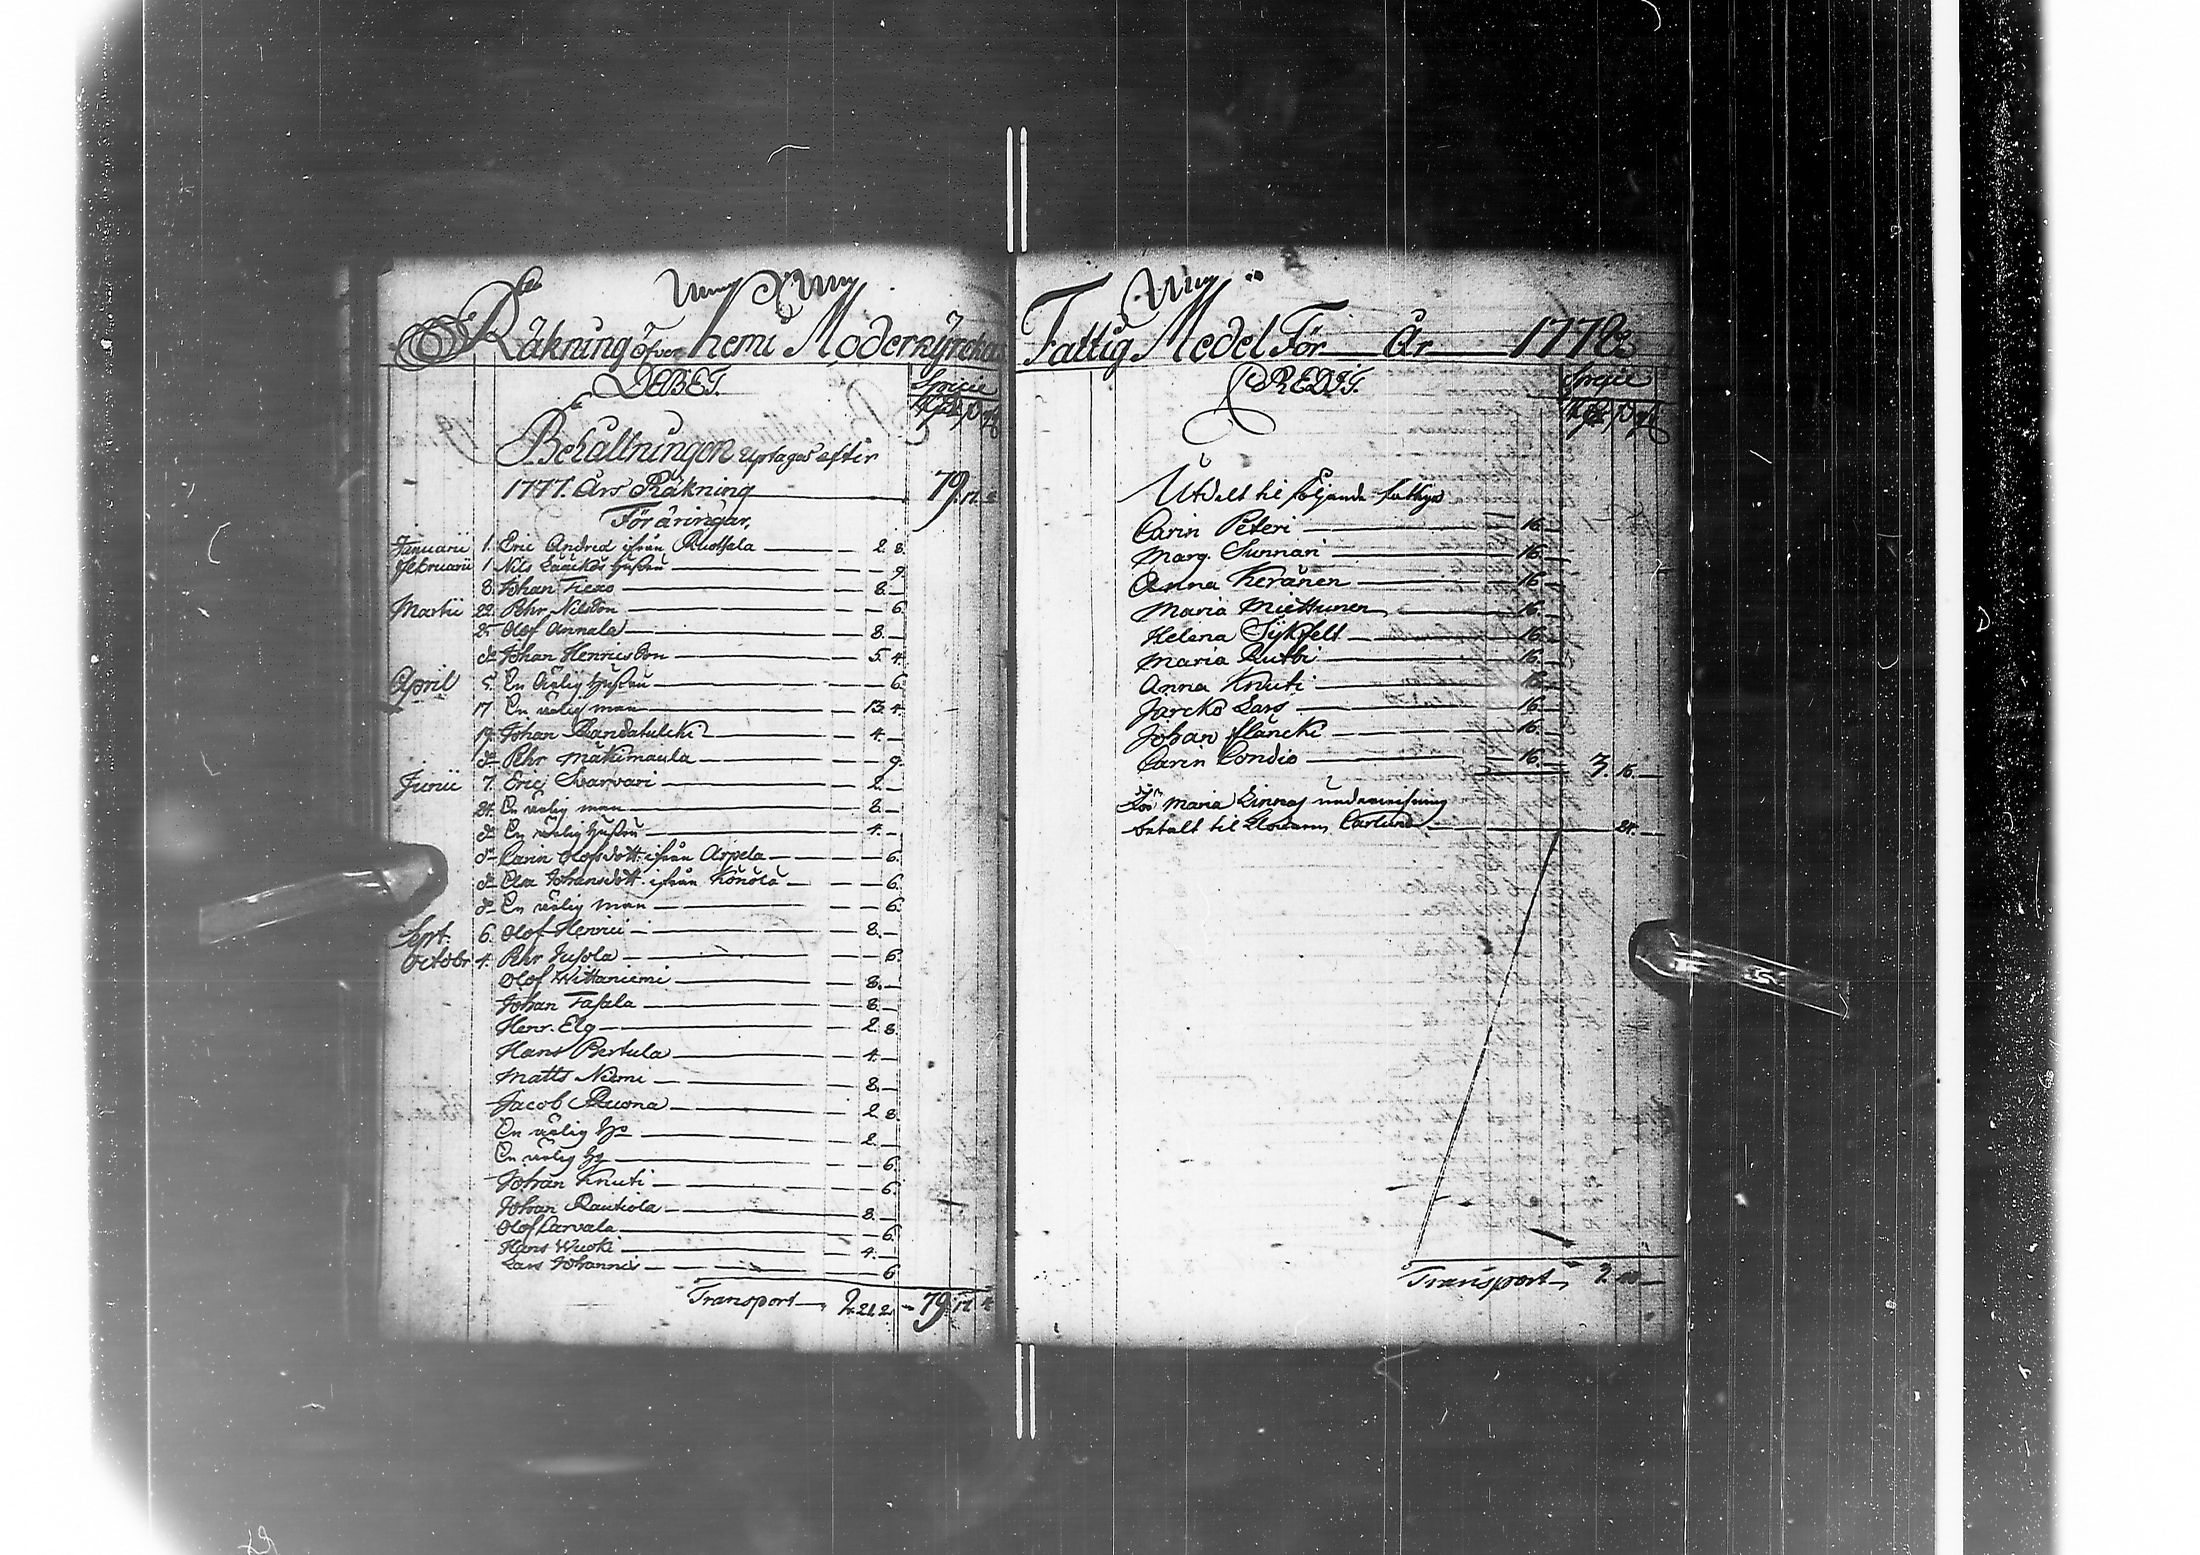 Räkning öfver Kemi Moderkyrckas
DEBET.
Specie
Behållningen uptages efter
1777. Års Räkning 79. 17. 4
Föräringar.
Januarii 1. Eric Andred ifrån Ruottala 2. 8.
Februarii 1 Nils Hustru 9.
8. Johan 8.
Martii 22. Pehr Nilsson 6.
25 Olof Annala 8.
do Johan Henricsson 5. 4.
April 5. En ärlig Hustru 6.
17 En ärlig man 13. 4.
19. Johan Randatulcki 4.
do Pehr Mäkimaula 9.
Junii 7. Eric Swarvari 2.
24. En ärlig man 8.
do En ärlig Hustru 4.
do Carin Olofsdott. ifrån Arpela 6.
do Elsa Johansdott. ifrån Könölä 6.
do En ärlig man 6.
Sept. 6. Olof Henrici 8.
Octobr. 4. Pehr Jusola 6.
Olof Wittaniemi 8.
Johan Tasala 8.
Henr. Elg 2. 8.
Hans Pertula 4.
Matts Niemi 8.
Jacob Ruona 2. 8.
En ärlig 2.
En ärlig 6.
Johan Knuti 6.
Johan Rautiola 8.
Olof Parvala 6.
Hans Wuoki 4.
Lars Johannis 6
Transport 2. 21. 2. 79. 17. 4.
Fattig Medel För År 1778
CREDIT.
Specie
Utdelt til följande fattiga
Carin Peteri 16.
Marg. Sunnari 16.
Anna Keränen 16
Maria Miettunen 16.
Helena Sijkfelt 16.
Maria Rutbi 16.
Anna Knuti 16.
Jarcko Lars 16.
Johan Hancki 16.
Carin Condio 16. 3. 16.
För Maria Linnas undervisning
betalt til Carlund 24.
Transport